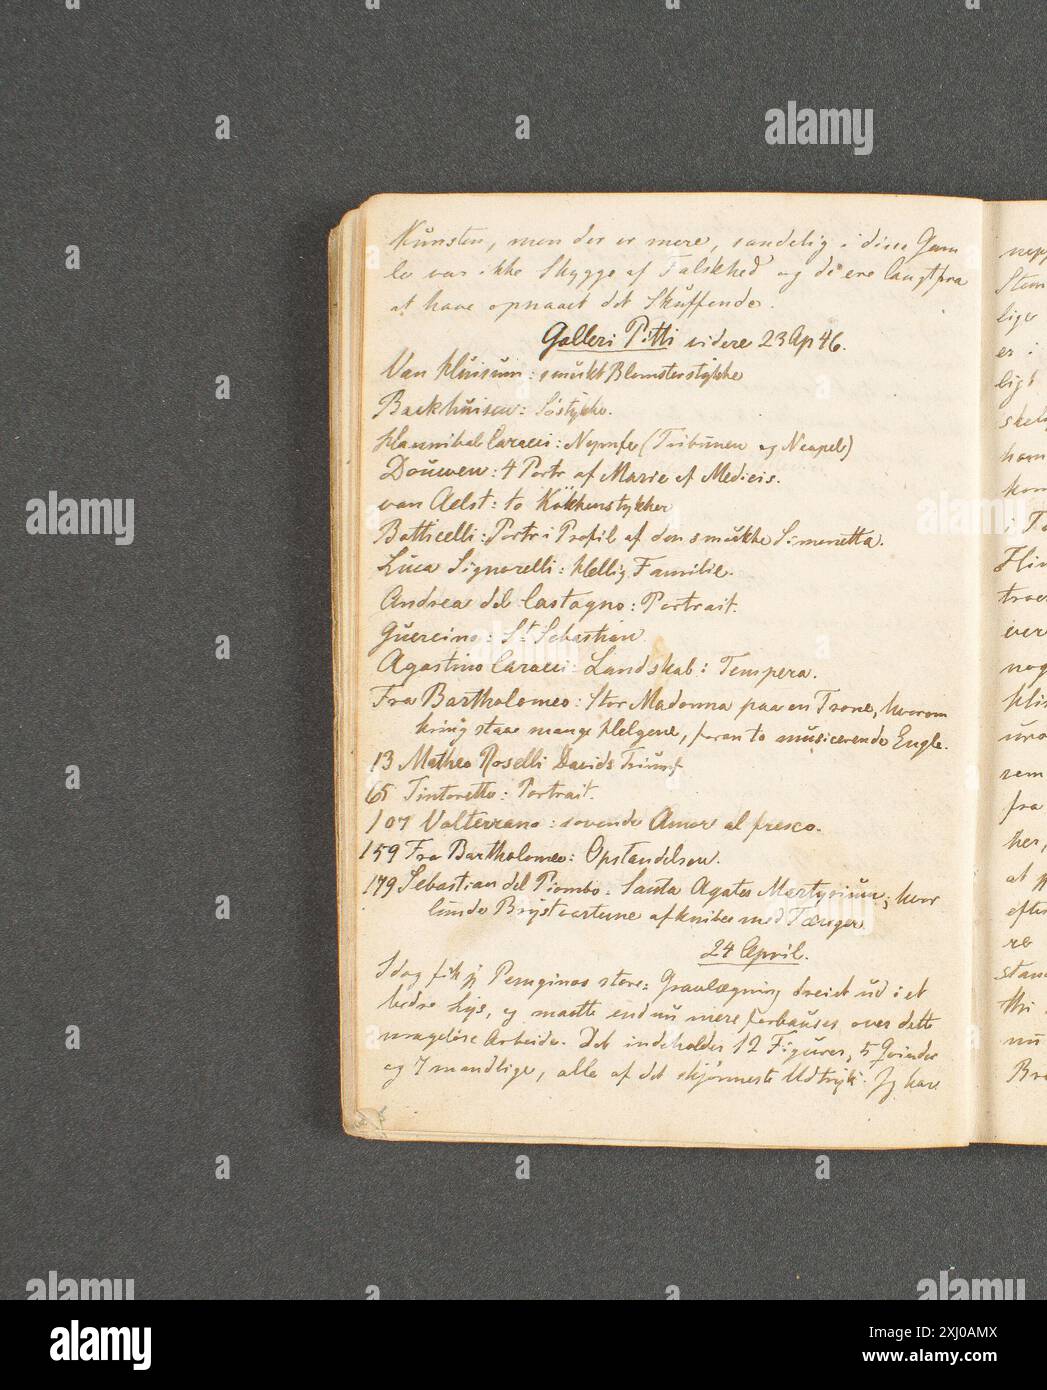 Kunsten, men der er mere, sandelig i disse Gam
le var ikke Skygge af Falskhed og de ere langtfra
at have opnaaet det Skuffende.
Galleri Pitti videre 23 Ap 46.
Van Huisum: smukt Blomsterstykke
Backhuisen: Søstykke.
Hannibal Caracci: Nymfe (Tribunen og Neapel)
Douwen: 4 Portr af Marie af Medicis.
van Aelst: to Kökkenstykker
Botticelli: Portr i Profil af den smukke Simonetta.
Luca Signorelli: Hellig Familie.
Andrea del Castagno: Portrait.
Guercino: St Sebastian
Agostino Caracci: Landskab: Tempera.
Fra Bartholomeo: Stor Madonna paa en Trone, hvorom
kring staae mange Helgene, foran to musicerende Engle.
13 Matheo Roselli Davids Triumf
65 Tintoretto: Portrait.
107 Volterrano: sovende Amor al fresco.
159 Fra Bartholomeo: Opstandelsen.
179 Sebastian del Piombo: Santa Agates Martyrium; hvor
hende Brystvorterne afknibes med Tænger
24 April.
Idag fik jg Peruginos store Gravlægning dreiet ud i et
bedre Lys, og maatte endnu mere forbauses over dette
mageløse Arbeide. Det indeholder 12 Figurer, 5 Qvinder
og 7 mandlige, alle af det skjönneste Udtryk. Jg har
Stem
lige
er i
ligt
i
fra
her,
at
re
nu
alamy
a
alamy
Image ID: 2XJ0AMX
www.alamy.com